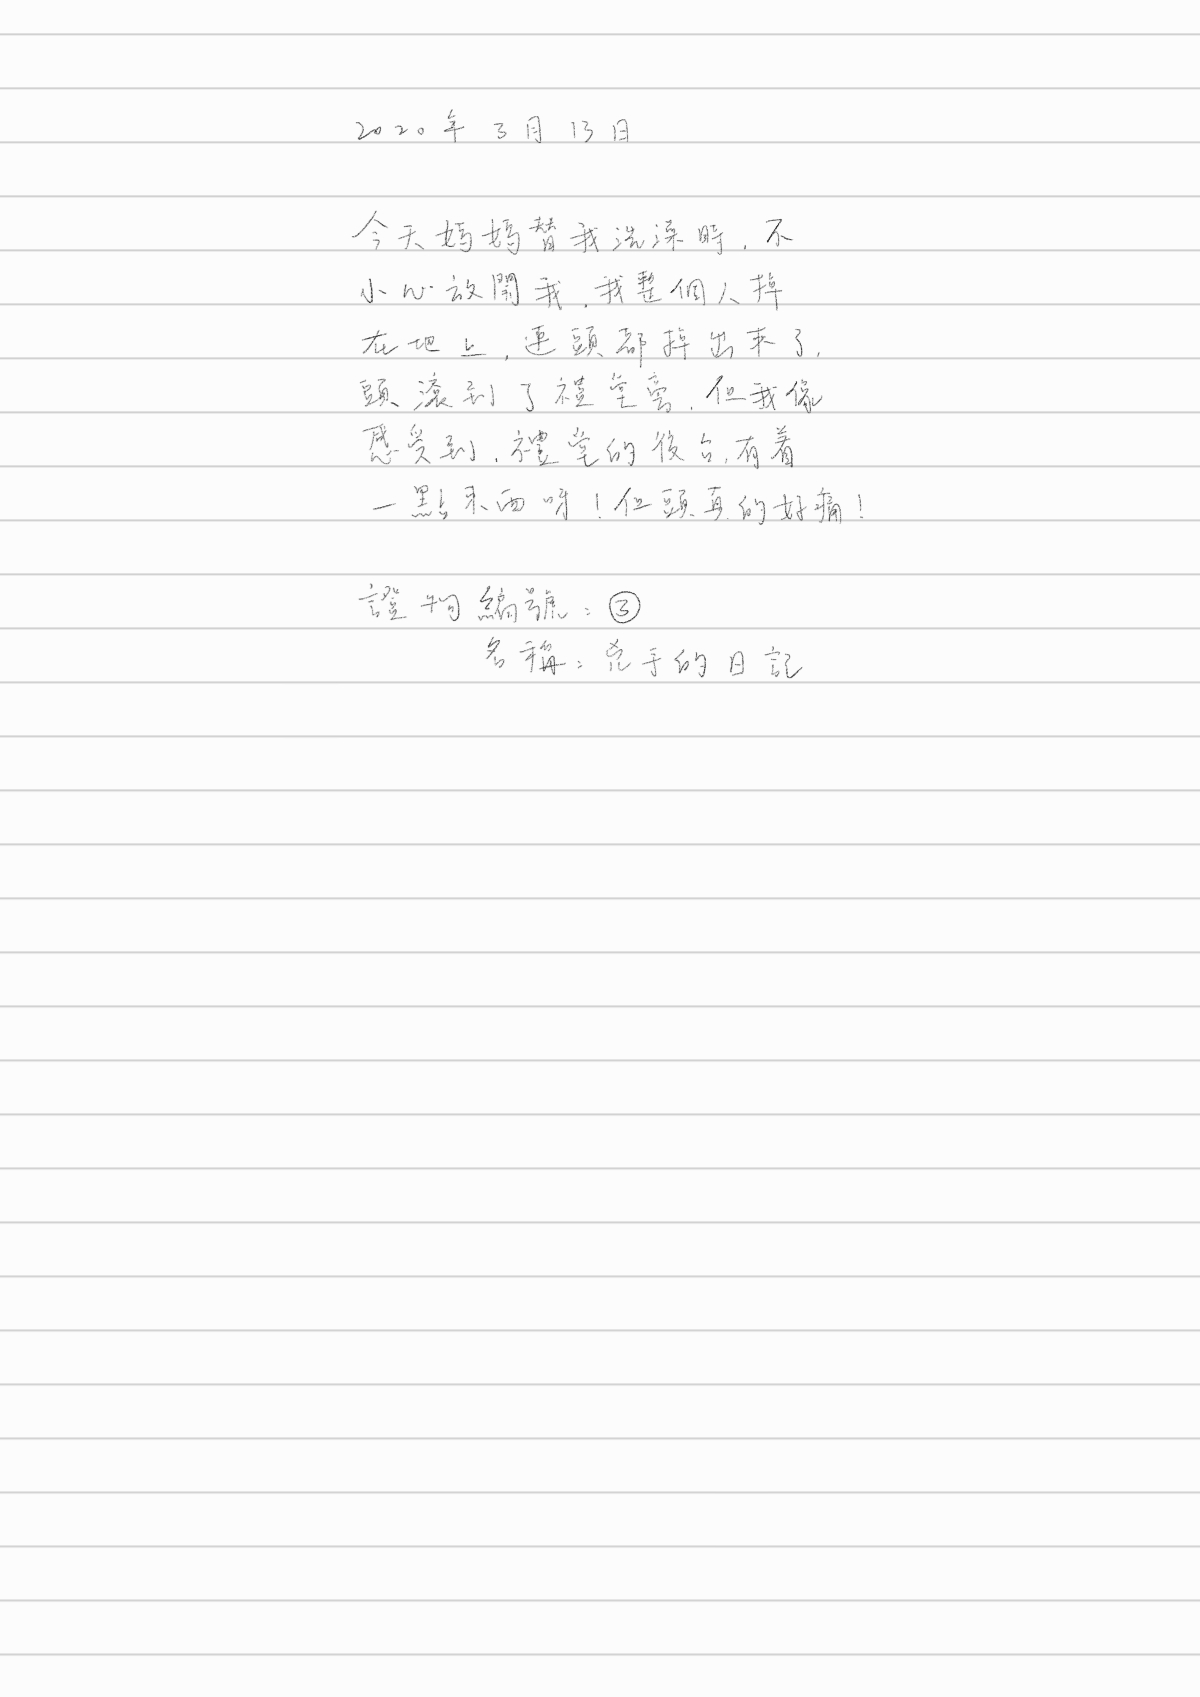 2020年 3月 13日
今天媽媽替我洗澡時，不
小心放開我，我整個人掉
在地上，連頭都掉出來了，
頭滾到了禮堂旁，但我像
感受到，禮堂的後台，有着
一點東西呀！但頭真的好痛！
證物編號：③
名稱：兇手的日記